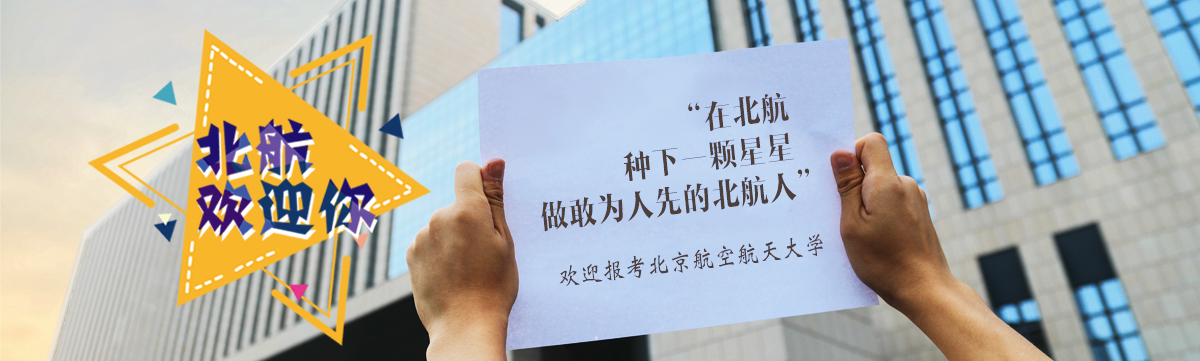 北航
欢迎你
“在北航
种下一颗星星
做敢为人先的北航人”
欢迎报考北京航空航天大学